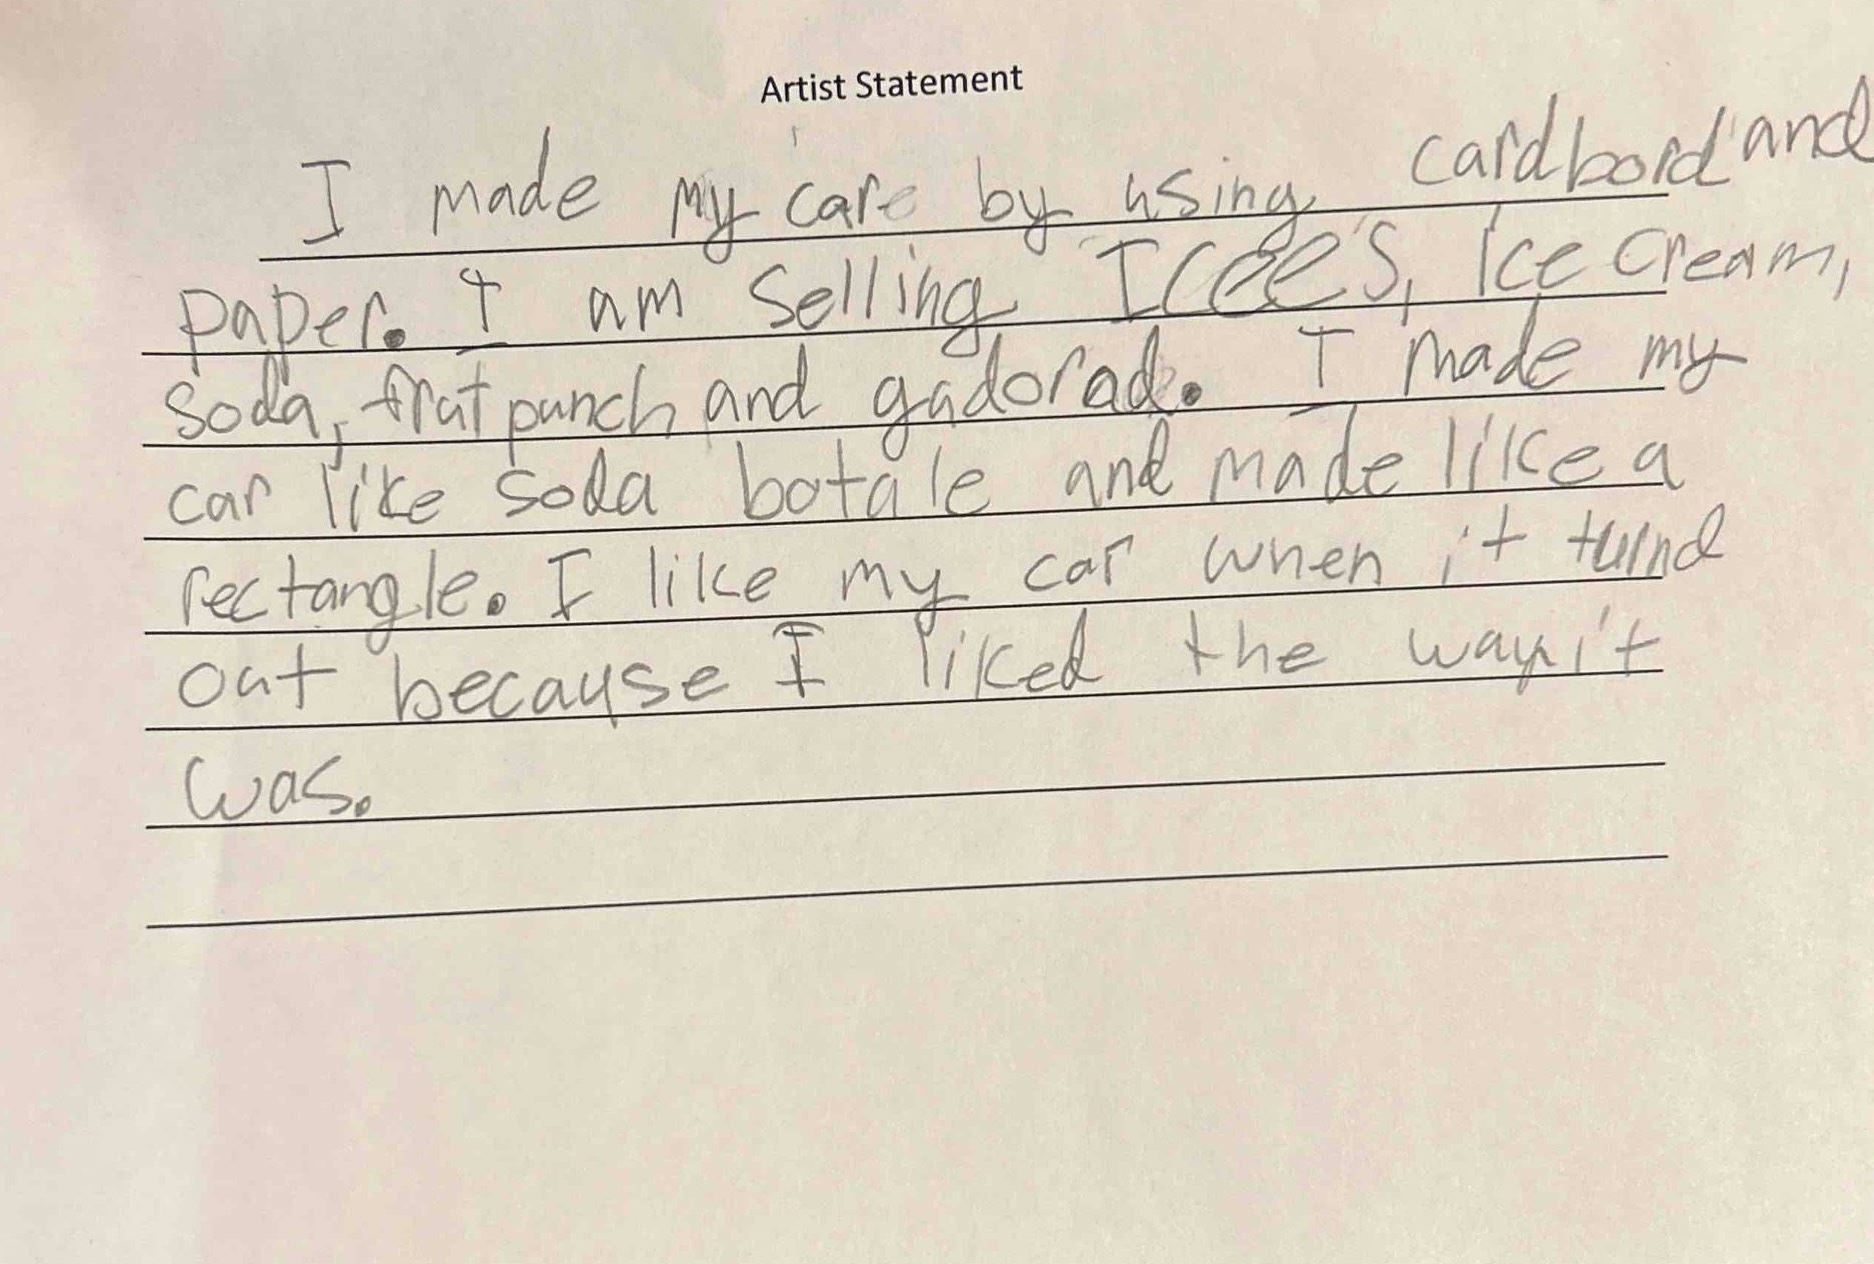 Artist Statement
I made my care by using cardbord and
paper. I am selling ICEE'S, Ice cream,
soda, frut punch and gadorad.  I made my
car like soda botale and made like a
rectangle. I like my car when it turnd
out because I liked the way it
was.